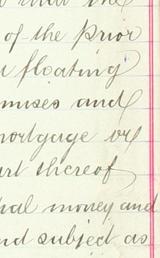 of the prior
floating
mises and
mortgage or
art thereof
pal money and
nd subject as